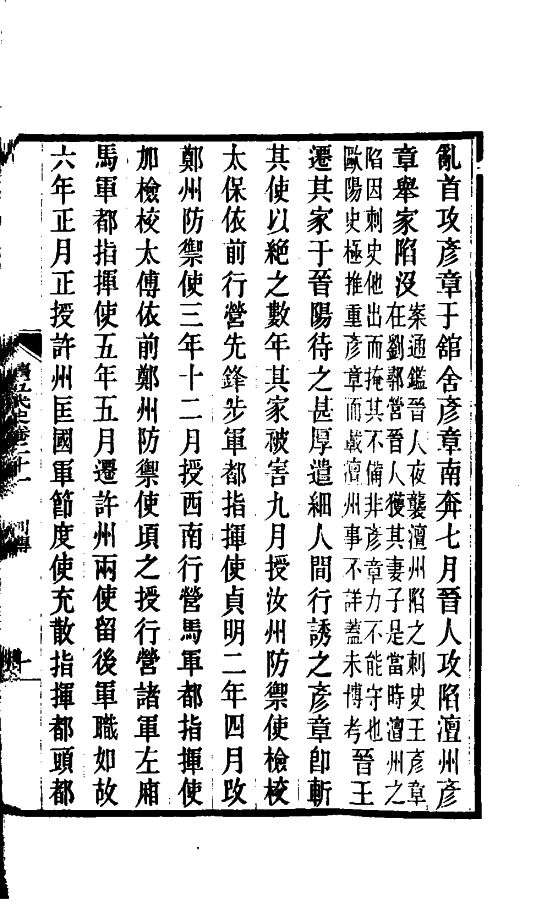 亂首攻彥章于舘舍彥章南奔七月晉人攻陷澶州彥
章舉家陷沒
案通鑑晉人夜襲澶州陷之刺史王彥章
在劉鄩營晉人獲其妻子是當時澶州之
陷因刺史他出而掩其不備非彥章力不能守也
歐陽史極推重彥章而載澶州事不詳蓋未博考
晉王
遷其家于晉陽待之甚厚遣細人間行誘之彥章卽斬
其使以絕之數年其家被害九月授汝州防禦使檢校
太保依前行營先鋒步軍都指揮使貞明二年四月改
鄭州防禦使三年十二月授西南行營馬軍都指揮使
加檢校太傅依前鄭州防禦使頃之授行營諸軍左廂
馬軍都指揮使五年五月遷許州兩使留後軍職如故
六年正月正授許州匡國軍節度使充散指揮都頭都
五代史卷二十一
列傳
一